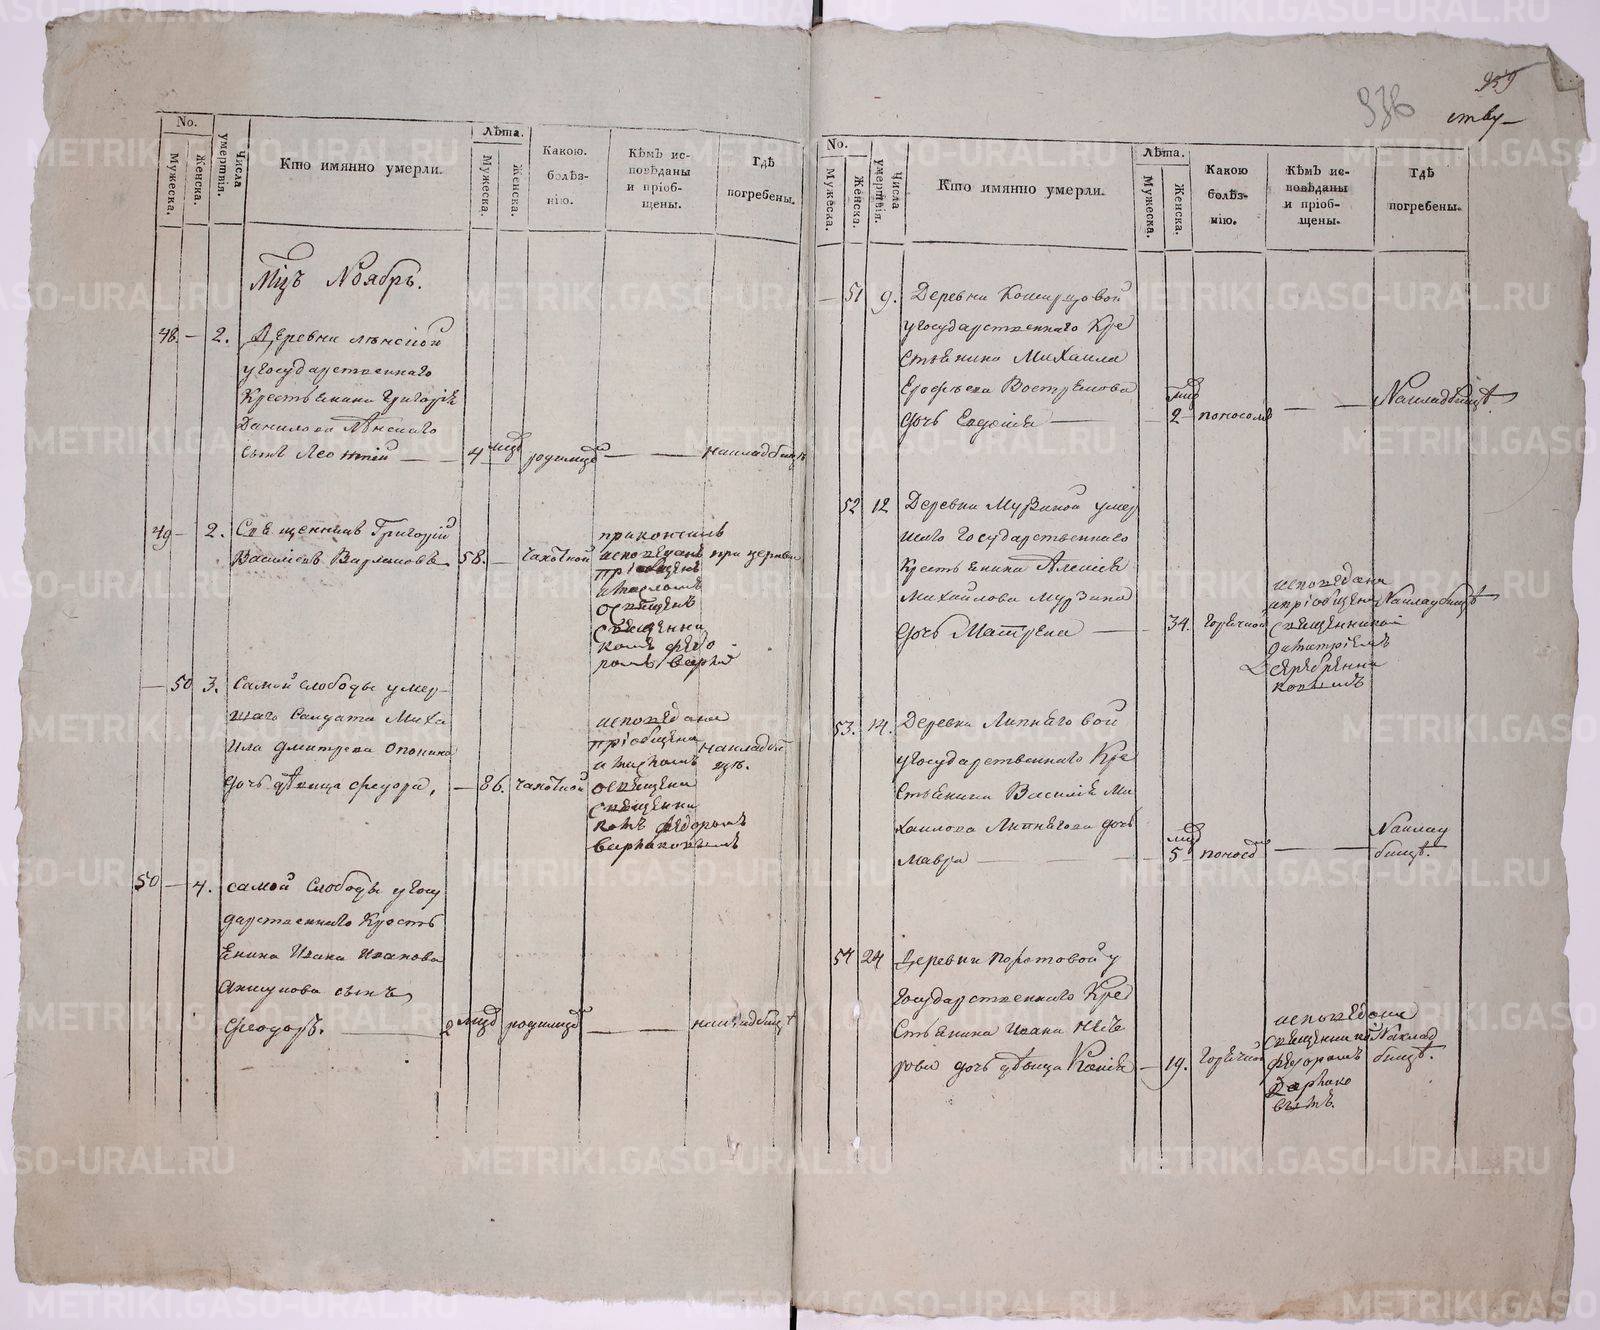 959
936
ству
No.
Мужеска.
Женска.
Числа умертвія.
Кто имянно умерли.
Лѣта.
Мужеска.
Женска.
Какою. болѣз- нію.
Кѣмъ ис- повѣданы и пріоб- щены.
Гдѣ погребены.
Мцъ Ноябрь.
48. — 2. Деревни Лѣнской
у государственнаго
Крестьянина Григорія
Данилова Лѣнскаго
сынъ Леонтій — 4 мцъ родимца — — на кладбищѣ
49 — 2. Священникъ Григорій
Василіевъ Варлаковъ 58. — чахоткой
при кончинѣ
исповѣданъ при церкви
пріобщенъ
и масломъ
освященъ
священни
комъ Ѳедо
ромъ
— 50 3. Самой слободы умер-
шаго Солдата Миха
ила Дмитрева
дочь дѣвица Ѳедора, — 86. чахоткой
исповѣдана
пріобщена
и масломъ
освящена
священни
комъ Ѳедоромъ
Варлаковымъ
на кладби
щѣ.
50 — 4. самой Слободы у госу
дарственнаго Кресть
янина Ивана Иванова
сынъ
Ѳеодоръ. — 2 мцъ родимца — — на кладбищѣ
No.
Мужеска.
Женска.
Числа умертвія.
Кто имянно умерли.
Лѣта.
Мужеска.
Женска.
Какою болѣз- нію.
Кѣмъ ис- повѣданы и пріоб- щены.
Гдѣ погребены.
— 51 9. Деревни
у государственнаго Кре
стьянина Михаила
Ерофѣева Вострекова
дочь Евдокія — 2 мцъ поносомъ — — На кладбищѣ.
52 12 Деревни Мурзиной умер
шаго Государственнаго
Крестьянина Алексія
Михайлова Мурзина
дочь Матрена — 34. горячкой
исповѣдана
и пріобщена На кладбищѣ
священникомъ
Димитріемъ
Серебренни
ковымъ
53. 14. Деревни Липняговой
у государственнаго Кре
стьянина Василія Ми
хаилова Липнягова дочь
Мавра — — 5 мцъ поносомъ — — На клад
бищѣ.
54 24 Деревни у
Государственнаго Кре
стьянина Ивана
дочь дѣвица — 19. Горячкой
исповѣдана
священникомъ На клад
Ѳедоромъ бищѣ.
Варлако
вымъ.
METRIKI.GASO-URAL.RU